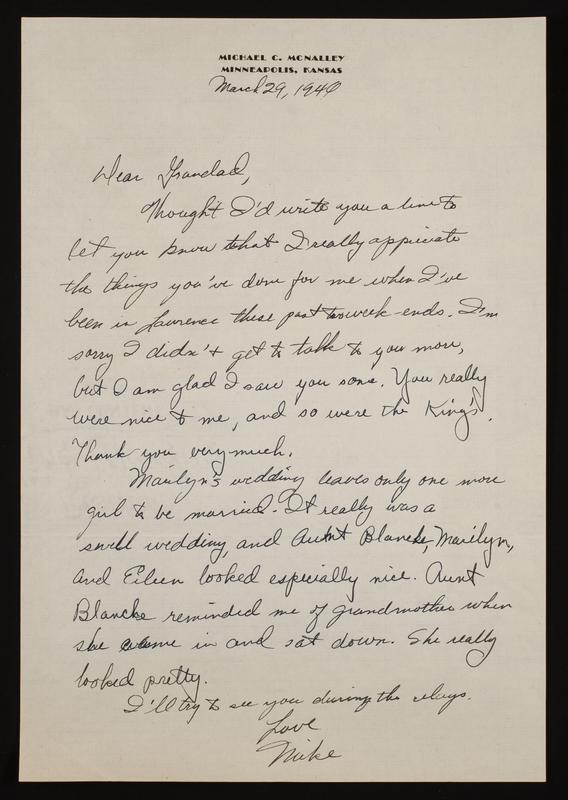 MICHAEL C. MCNALLEY
MINNEAPOLIS, KANSAS
March 29, 1940
Dear Grandad,
Thought I'd write you a line to
let you know that I really appriciate
the things you've done for me when I've
been in Lawrence these past two week-ends. I'm
sorry I didn't get to talk to you more,
but I am glad I saw you some. You really
were nice to me, and so were the King's.
Thank you very much.
Marilyn's wedding leaves only one more
girl to be married. It really was a
swell wedding, and Aunt Blanche, Marilyn,
and Eileen looked especially nice. Aunt
Blanche reminded me of grandmother when
she came in and sat down. She really
looked pretty.
I'll try to see you during the
Love
Mike